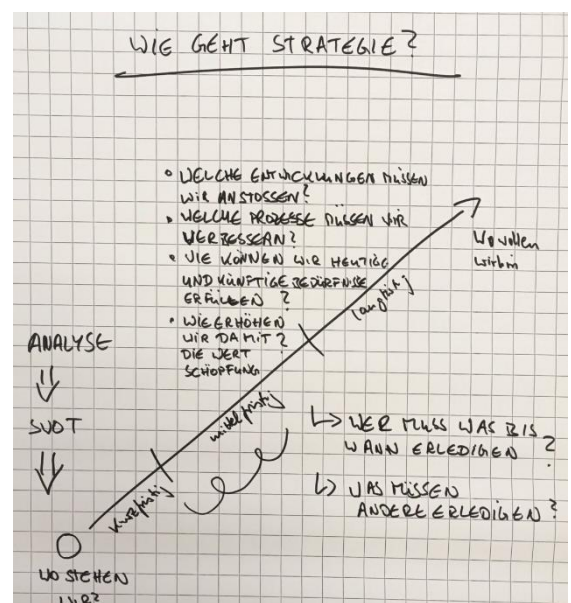 WIE GEHT STRATEGIE?
• WELCHE ENTWICKLUNGEN MÜSSEN
WIR ANSTOSSEN?
• WELCHE PROZESSE MÜSSEN WIR
VERBESSERN?
• WIE KÖNNEN WIR HEUTIGE
UND KÜNFTIGE BEDÜRFNISSE
ERFÜLLEN ?
• WIE ERHÖHEN
WIR DAMIT ?
DIE WERT
SCHÖPFUNG
Wo wollen
wir hin
langfristig
mittelfristig
kurzfristig
ANALYSE
SWOT
WO STEHEN
WIR?
↳ WER MUSS WAS BIS
WANN ERLEDIGEN ?
↳ WAS MÜSSEN
ANDERE ERLEDIGEN?